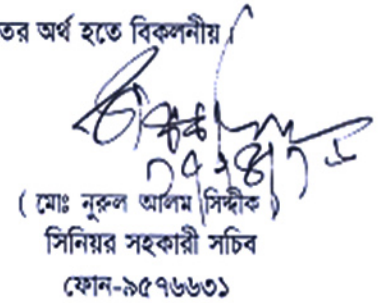 তর অর্থ হতে বিকলনীয়।
( মোঃ নুরুল আলম সিদ্দীক )
সিনিয়র সহকারী সচিব
ফোন-৯৫৭৬৬৩১